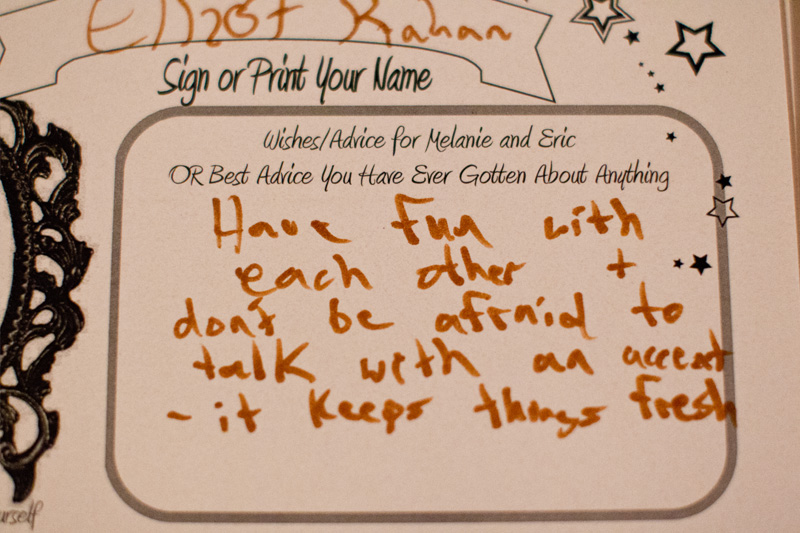 Elliot Kahan
Sign or Print Your Name
Wishes/Advice for Melanie and Eric
OR Best Advice You Have Ever Gotten About Anything
Have fun with
each other +
don't be afraid to
talk with an accent
- it keeps things fresh
urself